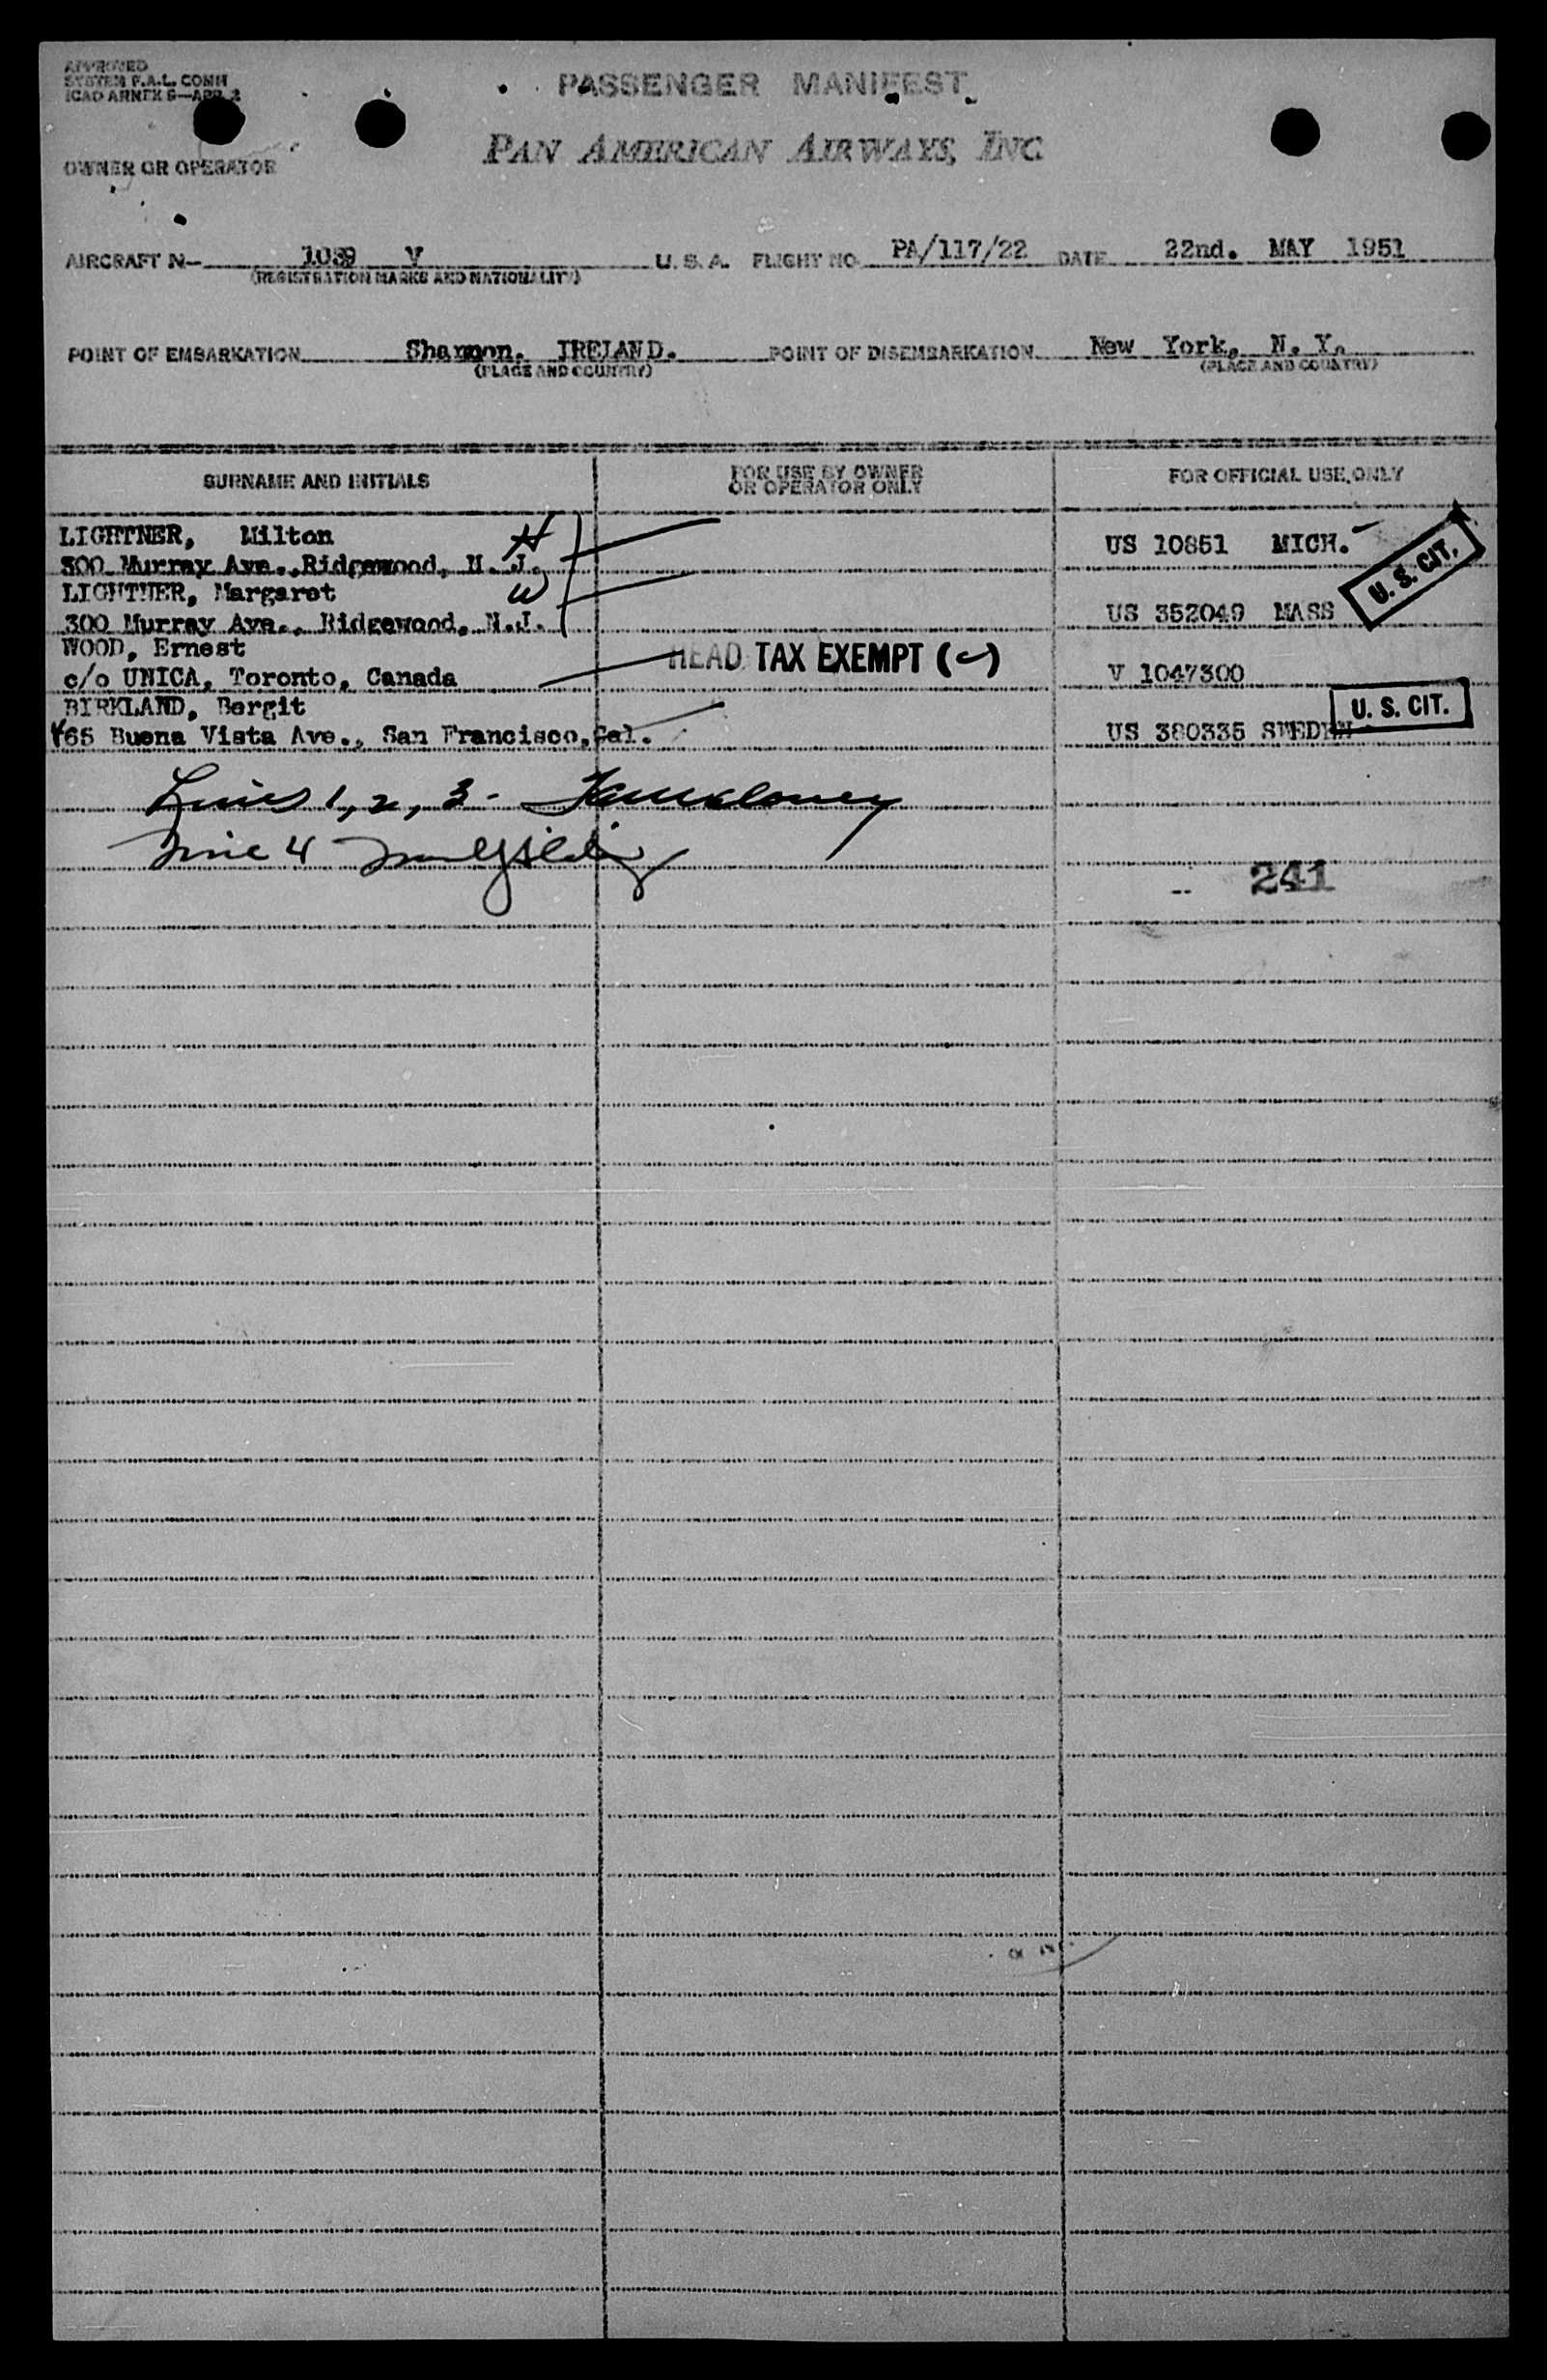 APPROVED
SYSTEM F.A.L. COMM
ICAO ANNEX 9—APP. 2
PASSENGER MANIFEST
PAN AMERICAN AIRWAYS, INC
OWNER OR OPERATOR
AIRCRAFT N— 1039 V U.S.A. FLIGHT NO. PA/117/22 DATE 22nd. MAY 1951
(REGISTRATION MARKS AND NATIONALITY)
POINT OF EMBARKATION Shannon. IRELAND. POINT OF DISEMBARKATION New York, N. Y.
(PLACE AND COUNTRY) (PLACE AND COUNTRY)
SURNAME AND INITIALS FOR USE BY OWNER OR OPERATOR ONLY FOR OFFICIAL USE ONLY
LIGHTNER, Milton H US 10851 MICH. U. S. CIT.
300 Murray Ave., Ridgewood, N. J.
LIGHTNER, Margaret W
300 Murray Ave., Ridgewood, N.J. US 352049 MASS
WOOD, Ernest HEAD TAX EXEMPT
c/o UNICA, Toronto, Canada V 1047300
BIRKLAND, Bergit U. S. CIT.
465 Buena Vista Ave., San Francisco, Cal. US 380335 SWEDEN
Lines 1, 2, 3 -
Line 4
241